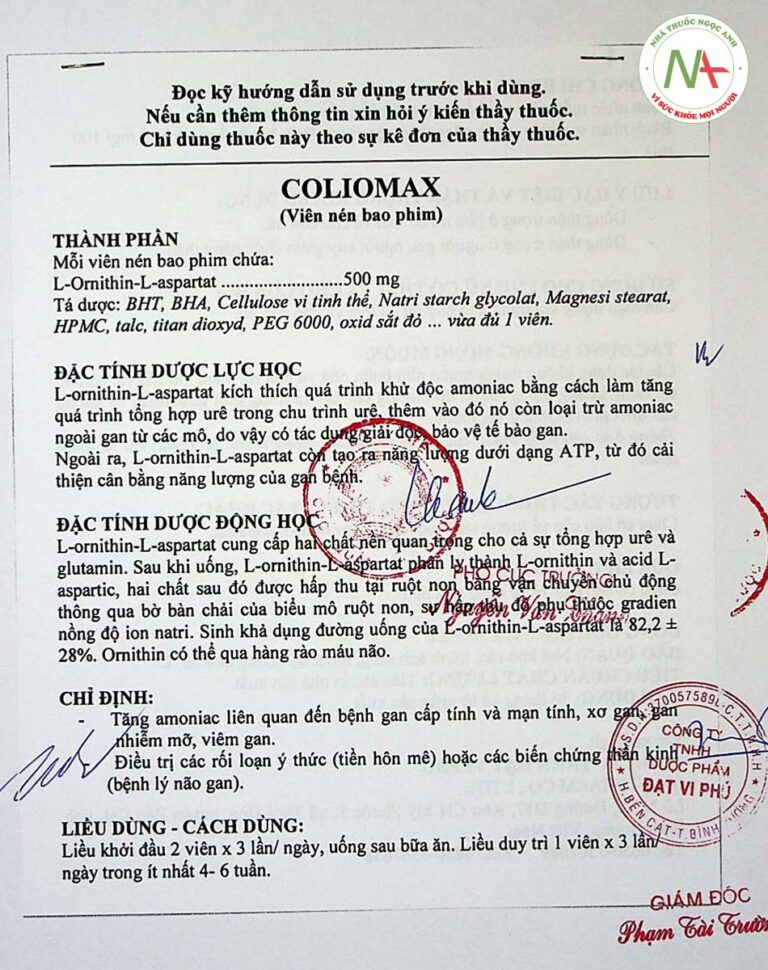 NHÀ THUỐC NGỌC ANH
VÌ SỨC KHỎE MỌI NGƯỜI
Đọc kỹ hướng dẫn sử dụng trước khi dùng.
Nếu cần thêm thông tin xin hỏi ý kiến thầy thuốc.
Chỉ dùng thuốc này theo sự kê đơn của thầy thuốc.
COLIOMAX
(Viên nén bao phim)
THÀNH PHẦN
Mỗi viên nén bao phim chứa:
L-Ornithin-L-aspartat ...........................500 mg
Tá dược: BHT, BHA, Cellulose vi tinh thể, Natri starch glycolat, Magnesi stearat,
HPMC, talc, titan dioxyd, PEG 6000, oxid sắt đỏ ... vừa đủ 1 viên.
ĐẶC TÍNH DƯỢC LỰC HỌC
L-ornithin-L-aspartat kích thích quá trình khử độc amoniac bằng cách làm tăng
quá trình tổng hợp urê trong chu trình urê, thêm vào đó nó còn loại trừ amoniac
ngoài gan từ các mô, do vậy có tác dụng giải độc, bảo vệ tế bào gan.
Ngoài ra, L-ornithin-L-aspartat còn tạo ra năng lượng dưới dạng ATP, từ đó cải
thiện cân bằng năng lượng của gan bệnh.
ĐẶC TÍNH DƯỢC ĐỘNG HỌC
L-ornithin-L-aspartat cung cấp hai chất nền quan trọng cho cả sự tổng hợp urê và
glutamin. Sau khi uống, L-ornithin-L-aspartat phân ly thành L-ornithin và acid L-
aspartic, hai chất sau đó được hấp thu tại ruột non bằng vận chuyển chủ động
thông qua bờ bàn chải của biểu mô ruột non, sự hấp thu đó phụ thuộc gradien
nồng độ ion natri. Sinh khả dụng đường uống của L-ornithin-L-aspartat là 82,2 ±
28%. Ornithin có thể qua hàng rào máu não.
PHÓ CỤC TRƯỞNG
Nguyễn Văn Thanh
CHỈ ĐỊNH:
- Tăng amoniac liên quan đến bệnh gan cấp tính và mạn tính, xơ gan, gan
nhiễm mỡ, viêm gan.
Điều trị các rối loạn ý thức (tiền hôn mê) hoặc các biến chứng thần kinh
(bệnh lý não gan).
CÔNG TY
TNHH
DƯỢC PHẨM
ĐẠT VI PHÚ
LIỀU DÙNG - CÁCH DÙNG:
Liều khởi đầu 2 viên x 3 lần/ ngày, uống sau bữa ăn. Liều duy trì 1 viên x 3 lần/
ngày trong ít nhất 4- 6 tuần.
GIÁM ĐỐC
Phạm Tài Trường